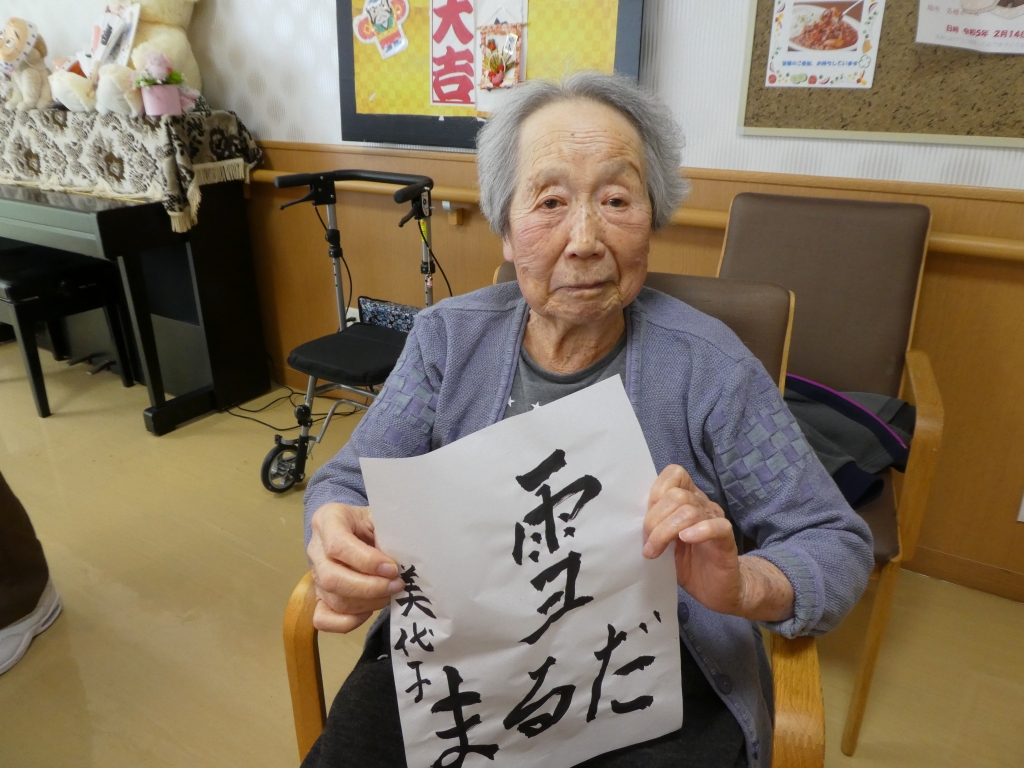 大吉
日時 令和5年 2月14
雪だるま
美代子